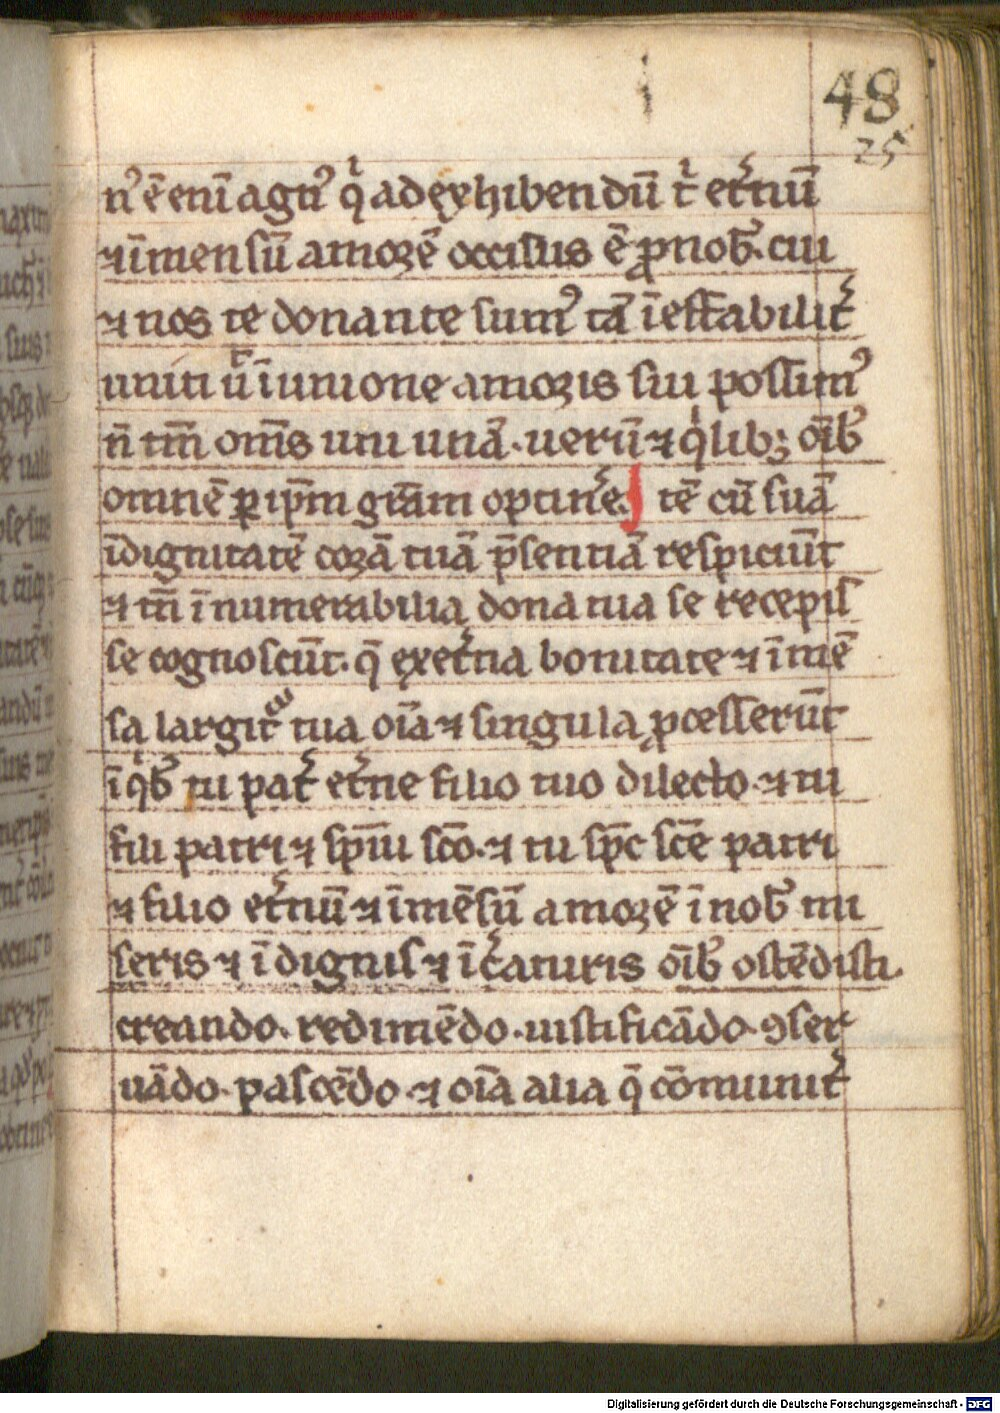 48
25
nꝰ ē enī agnꝰ qͥ ad exhibendū tͥ et͛nū
⁊ īmensū amorē occisus ē ꝓ nob̄. cui
⁊ nos te donante sumꝰ tā īeffabilit͛
uniti ut̄ ī unione amoris sui possimꝰ
n̄ tm̄ om̄s uni unā. uerū ⁊ qͥlibꝫ oīb̄
omnē ꝑ ip̄m gr̄am optin͛e. Itē cū suā
īdignitatē corā tuā p̄sentiā respiciūt
⁊ tn̄ īnumerabilia dona tua se recepis
se cognoscūt. q̄ ex et͛na bonitate ⁊ īmē
sa largit͛ tua oīa ⁊ singula ꝓcesserūt
ī qͥb̄ tu pat͛ et͛ne filio tuo dilecto. ⁊ tu
fili patri ⁊ sp̄ui sc̄o. ⁊ tu sp̄c sc̄e patri
⁊ filio et͛nū ⁊ īmēsū amorē ī nob̄ mi
seris ⁊ īdignis ⁊ īc͛aturis oīb̄ ostēdisti.
creando. redimēdo. iustificādo. ꝯser
uādo. pascēdo. ⁊ oīa alia q̄ cōmunit͛
Digitalisierung gefördert durch die Deutsche Forschungsgemeinschaft - DFG